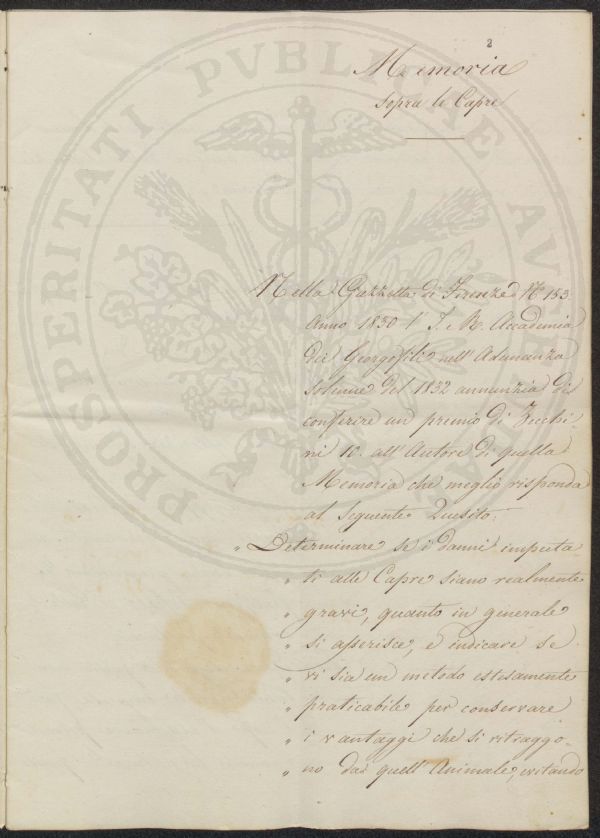 2
Memoria
sopra le Capre
Nella Gazzetta di Firenze N.º 153.
Anno 1830 l' I. e R. Accademia
dei Georgofili nell'Adunanza
solenne del 1832 annunzia di
conferire un premio di Zecchi-
ni 10. all'Autore di quella
Memoria che meglio risponda
al seguente Quesito:
" Determinare se i danni imputa
" ti alle Capre siano realmente
" gravi, quanto in generale
" si asserisce, e indicare se
" vi sia un metodo estesamente
" praticabile per conservare
" i vantaggi che si ritraggo-
" no da quell'Animale, evitando
PROSPERITATI PVBLICAE AVGENDAE